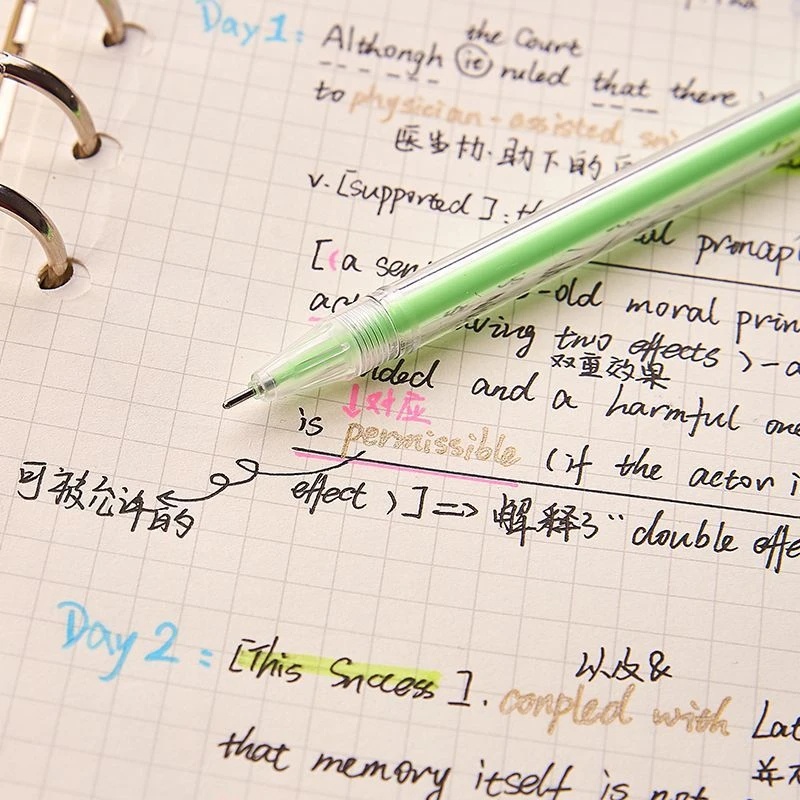 Day 1:
the Court
Although (it) ruled that there
to physician-assisted sui
医生协助下的自
v. [supported]: th
al principl
[(a sen
-old moral prin
ac
ving two effects)-a
双重效果
nded and a harmful one
↓对应
is permissible (if the actor i
可被允许的
effect)] => 解释了“double effe
Day 2:
以及&
[This Success]. conpled with Lat
并不
that memory itself is not